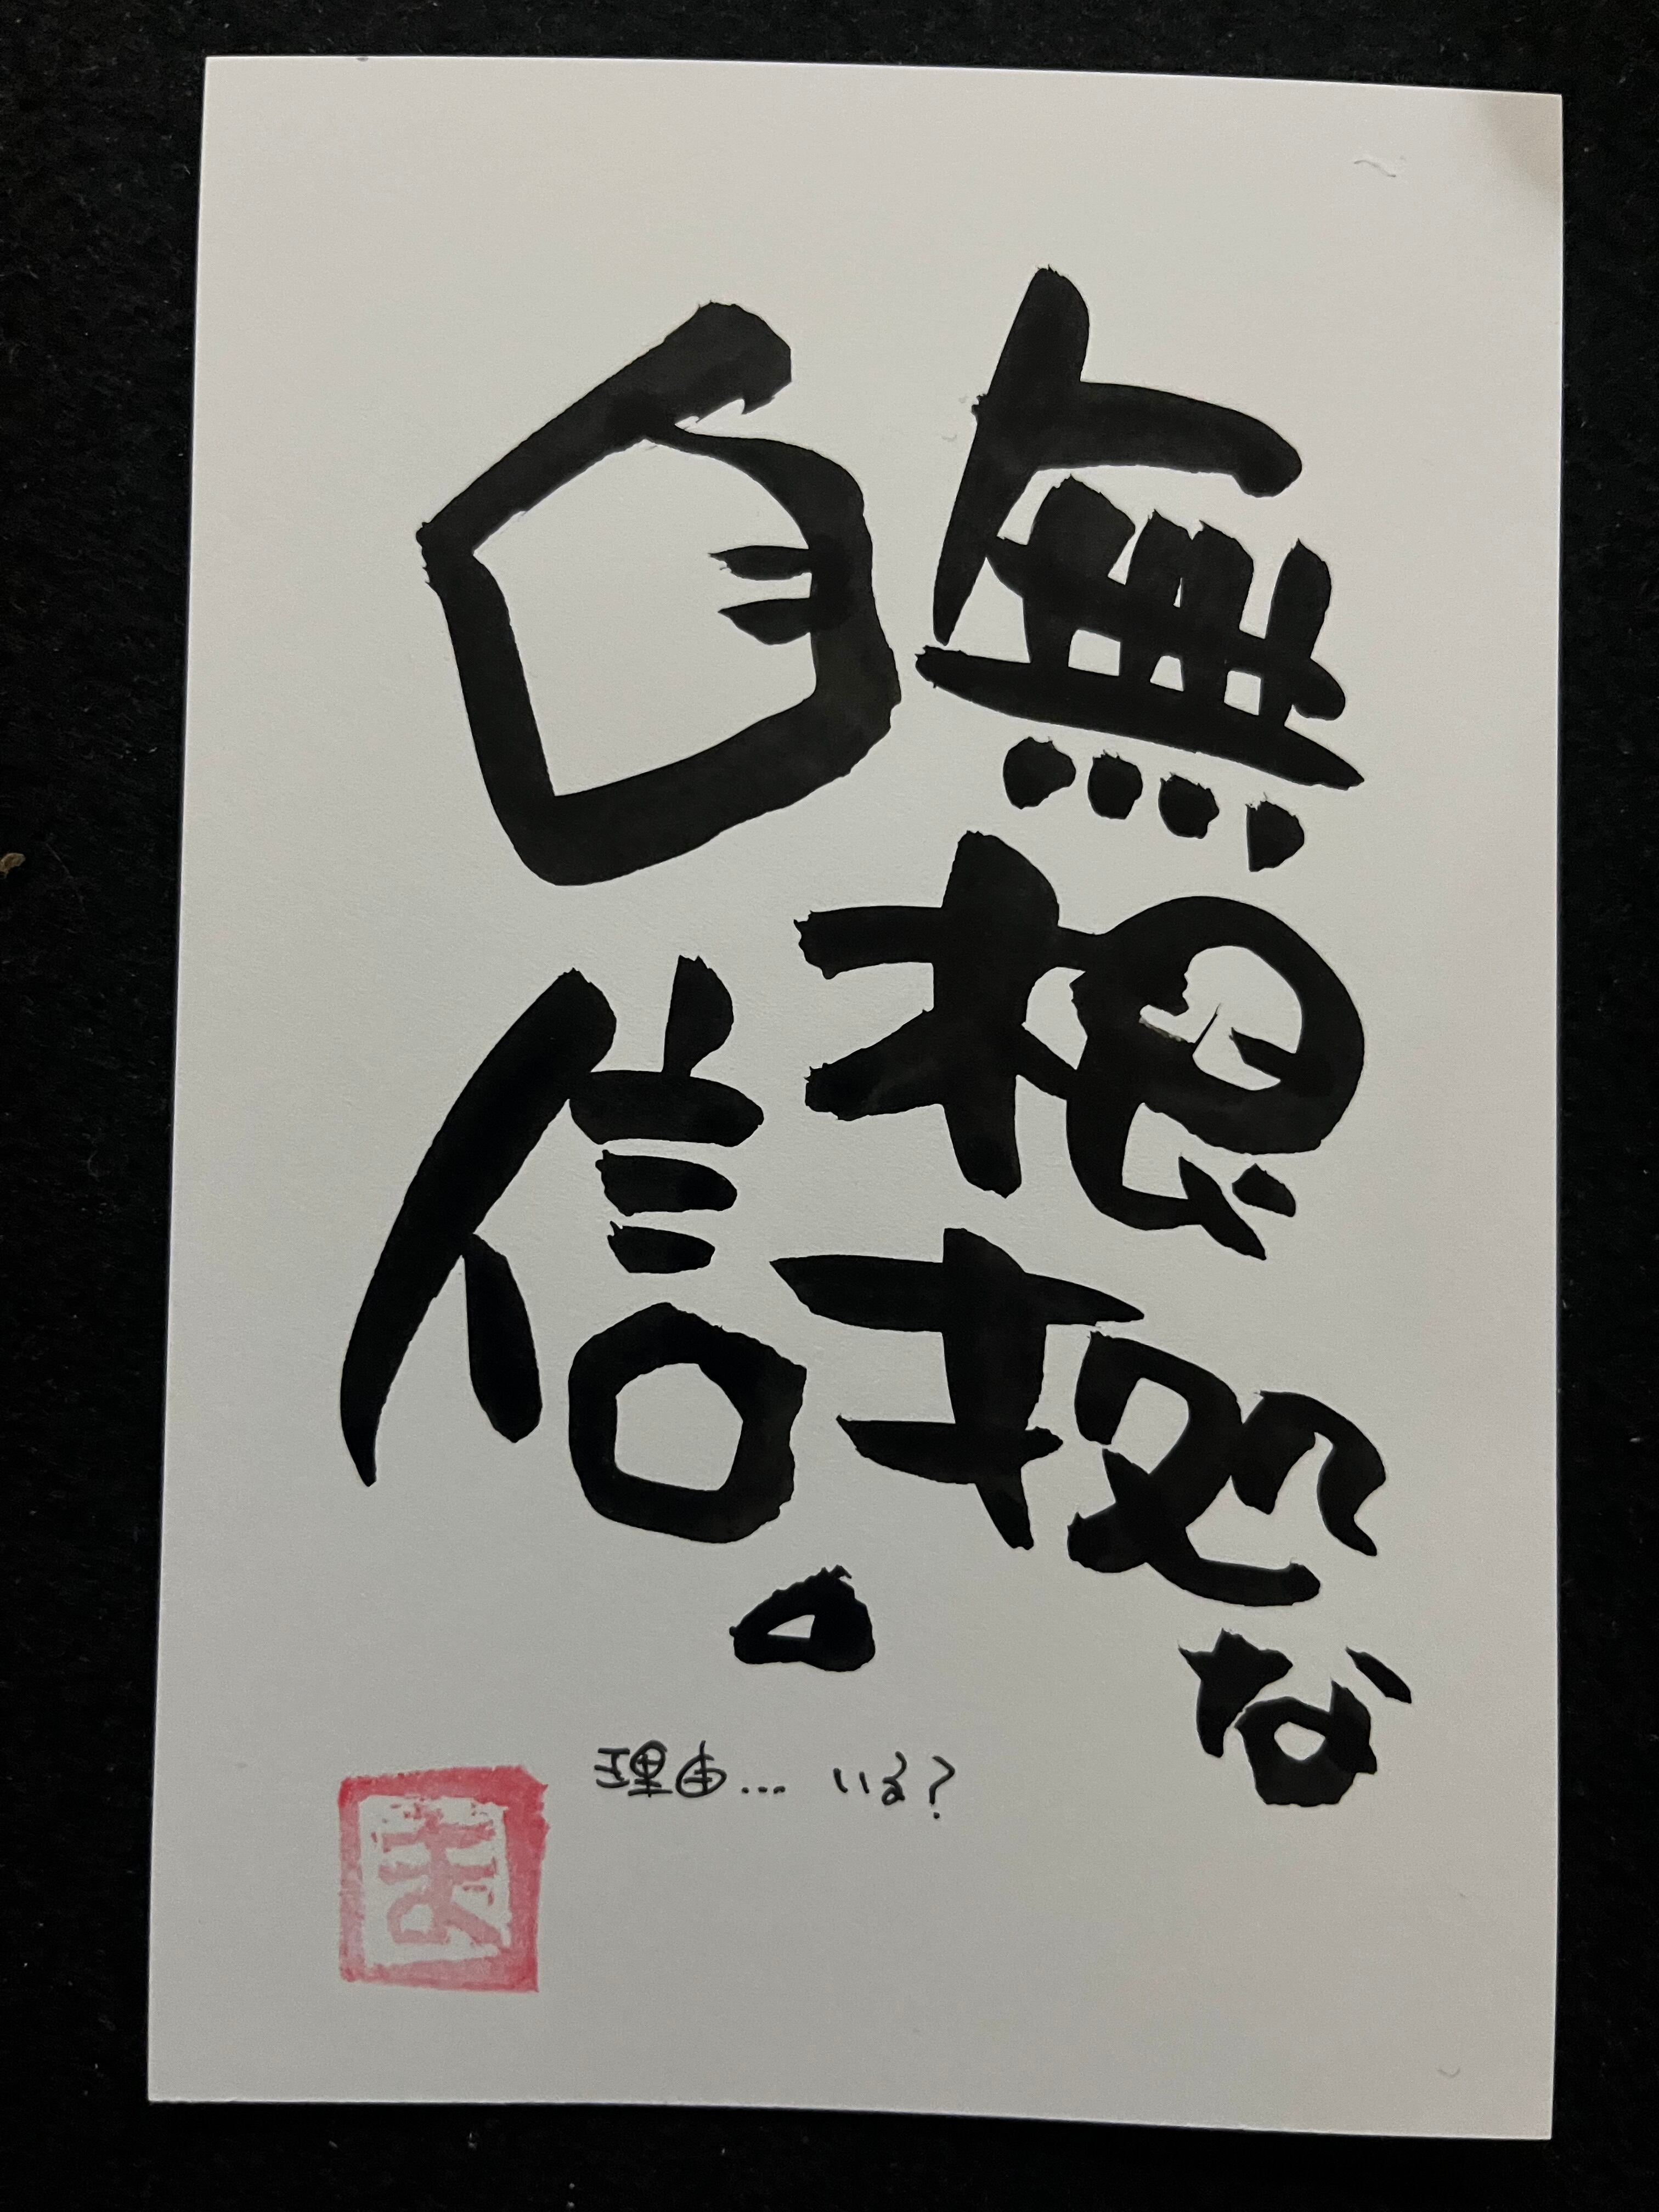 無根拠な
自信。
理由... いる?
ま